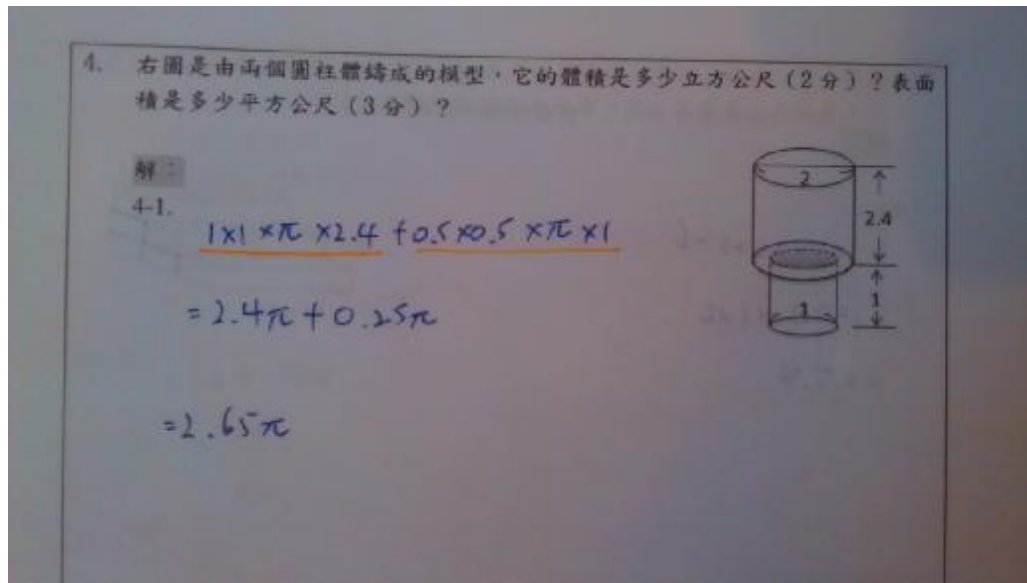 4. 右圖是由兩個圓柱體鑄成的模型，它的體積是多少立方公尺（2分）？表面
積是多少平方公尺（3分）？
解：
4-1.
1×1×π×2.4+0.5×0.5×π×1
=2.4π+0.25π
=2.65π
2
2.4
1
1